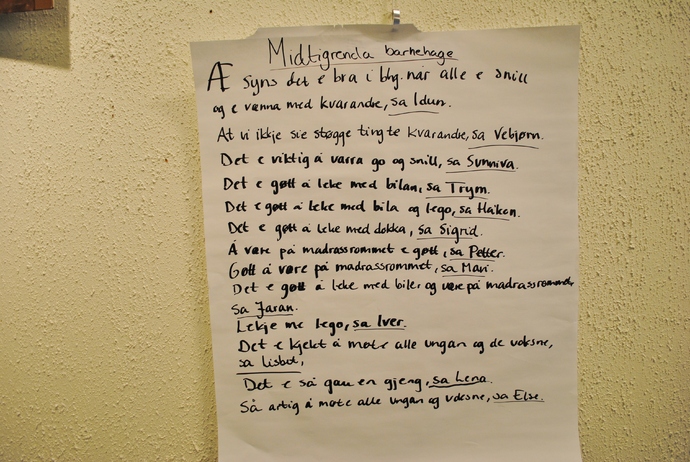 Midtigrenda barnehage
Æ syns det e bra i bhg. når alle e snill
og e vænna med kvarandre, sa Idun.
At vi ikkje sie støgge ting te kvarandre, sa Vebjørn.
Det e viktig å varra go og snill, sa Sunniva.
Det e gøtt å leke med bilan, sa Trym.
Det e gøtt å leke med bila og lego, sa Håkon.
Det e gøtt å leke med dokka, sa Sigrid.
Å være på madrassrommet e gøtt, sa Petter.
Gøtt å være på madrassrommet, sa Mari.
Det e gøtt å leke med biler og være på madrassrommet,
sa Jaran.
Lekje me lego, sa Iver.
Det e kjekt å møte alle ungan og de voksne,
sa Lisbet,
Det e så gau en gjeng, sa Lena.
Så artig å møte alle ungan og voksne, sa Else.